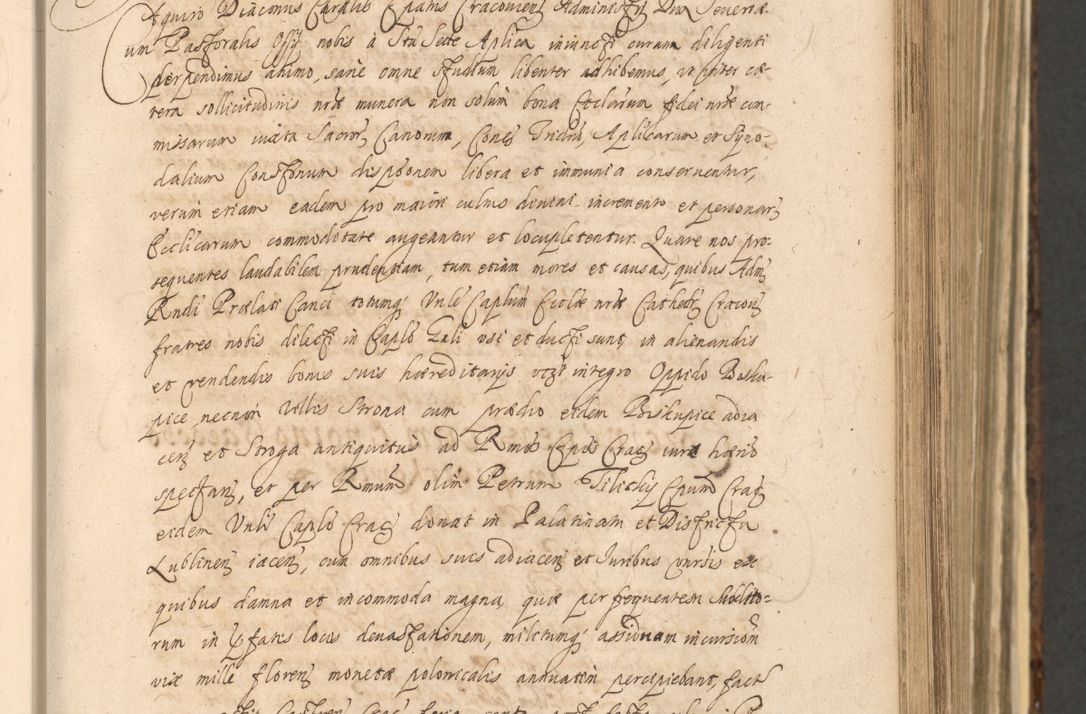 Aquiro Diaconus Cardlis Epatus Cracovien Administr Dux Severiæ
Cum Pastoralis Offy nobis à Sta Sede Aplica iniuncti curam diligenti
perpendimus animo, sanè omne studium libenter adhibemus, ut præter cæ-
tera sollicitudinis nræ munera non solum bona Ecclarum fidei nræ com-
missarum iuxta Sacror Canonum, Conc Trid, Aplicarum et Syno-
dalium Constonum dispōnem libera et immunia conserventur,
verum etiam eadem pro maiori cultus divini incremento et personar
Ecclicarum commoditate augeantur et locupletentur. Quare nos pro-
sequentes laudabilem prudentiam, tum etiam mores et causas, quibus Adm
Rndi Prælati Canci totumq Vnle Caplum Ecclæ nræ Cathedr Cracov
fratres nobis dilecti in Caplo Gnli usi et ducti sunt, in alienandis
et vendendis bonis suis hæreditarijs vtzt integro Oppido Bisku-
pice, necnon Villis Strona cum prædio eidem Biskupice adia
cen et Stroga antiquitus ad Rmos Epos Crac iure hæred
spectan, et per Rmum olim Petrum Tilicky Epum Crac
eidem Vnli Caplo Crac donat in Palatinatu et Districtu
Lublinen iacen, cum omnibus suis adiacen et Iuribus vnrsis ex
quibus damna et incommoda magna, quæ per frequentem subdito-
rum in præfatis locis devastationem, militumq assiduam incursiōm
vix mille floren monetæ polonicalis annuatim percipiebant, fact